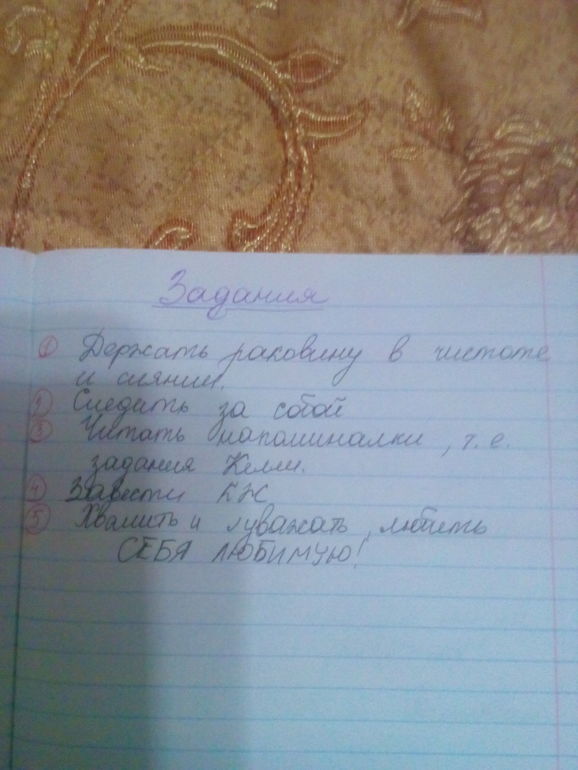 Задания
1 Держать раковину в чистоте
и сиянии.
2 Следить за собой
3 Читать напоминалки, т.е.
задания Келли.
4 Завести КЖ
5 Хвалить и уважать, любить
СЕБЯ ЛЮБИМУЮ!